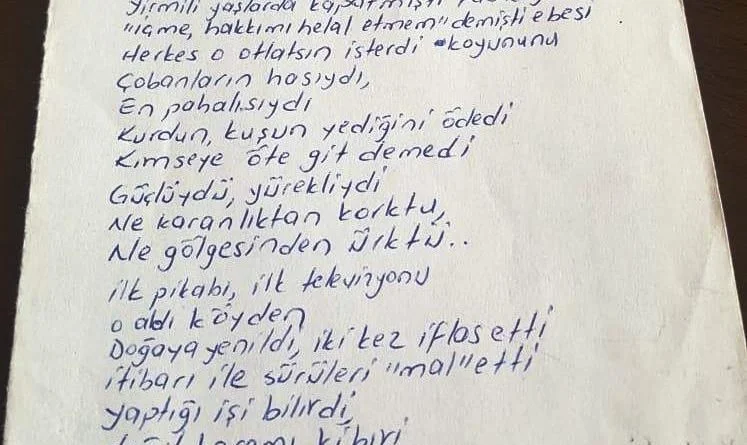 Yirmili yaşlarda
"içme, hakkımı helal etmem" demişti ebesi
Herkes o otlatsın isterdi koyununu
Çobanların hasıydı,
En pahalısıydı
Kurdun, kuşun yediğini ödedi
Kimseye öte git demedi
Güçlüydü, yürekliydi
Ne karanlıktan korktu,
Ne gölgesinden ürktü..
ilk pikabı, ilk televizyonu
o aldı köyden
Doğaya yenildi, iki kez iflas etti
itibarı ile sürüleri "mal" etti
yaptığı işi bilirdi
kibiri